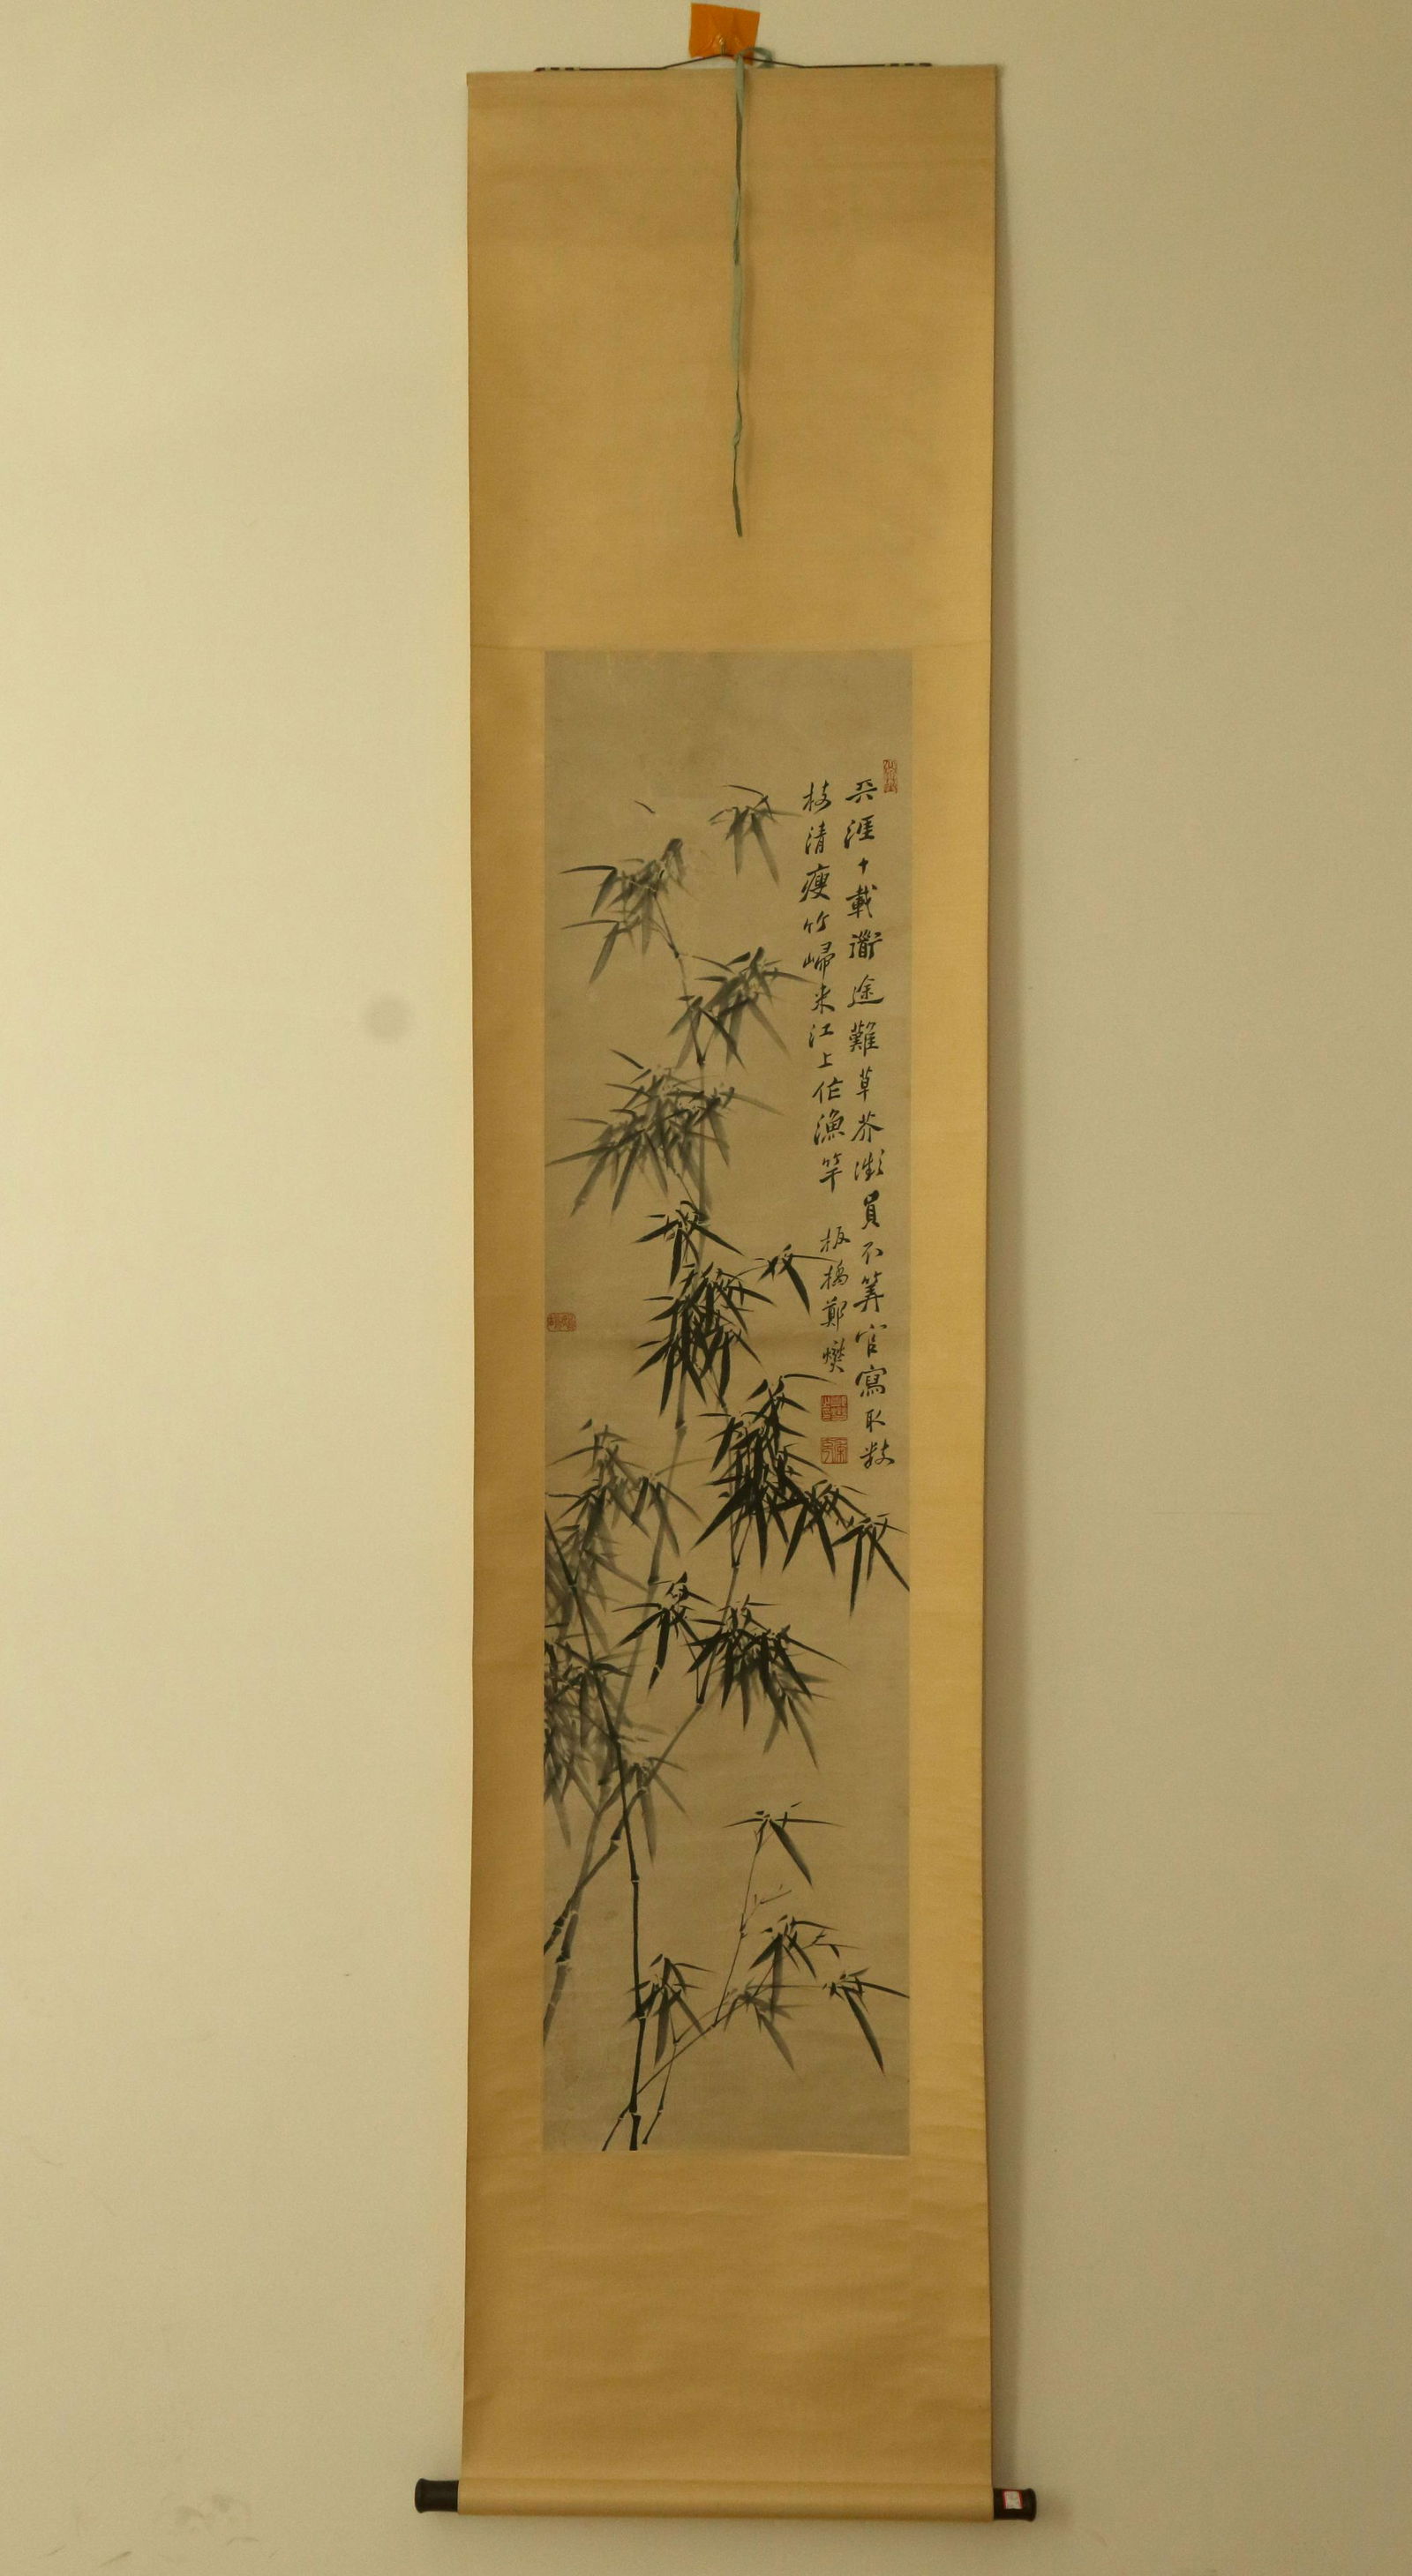 天涯十載途難草芥微員不筭官寫取數
枝清瘦竹歸来江上作漁竿 板橋鄭燮